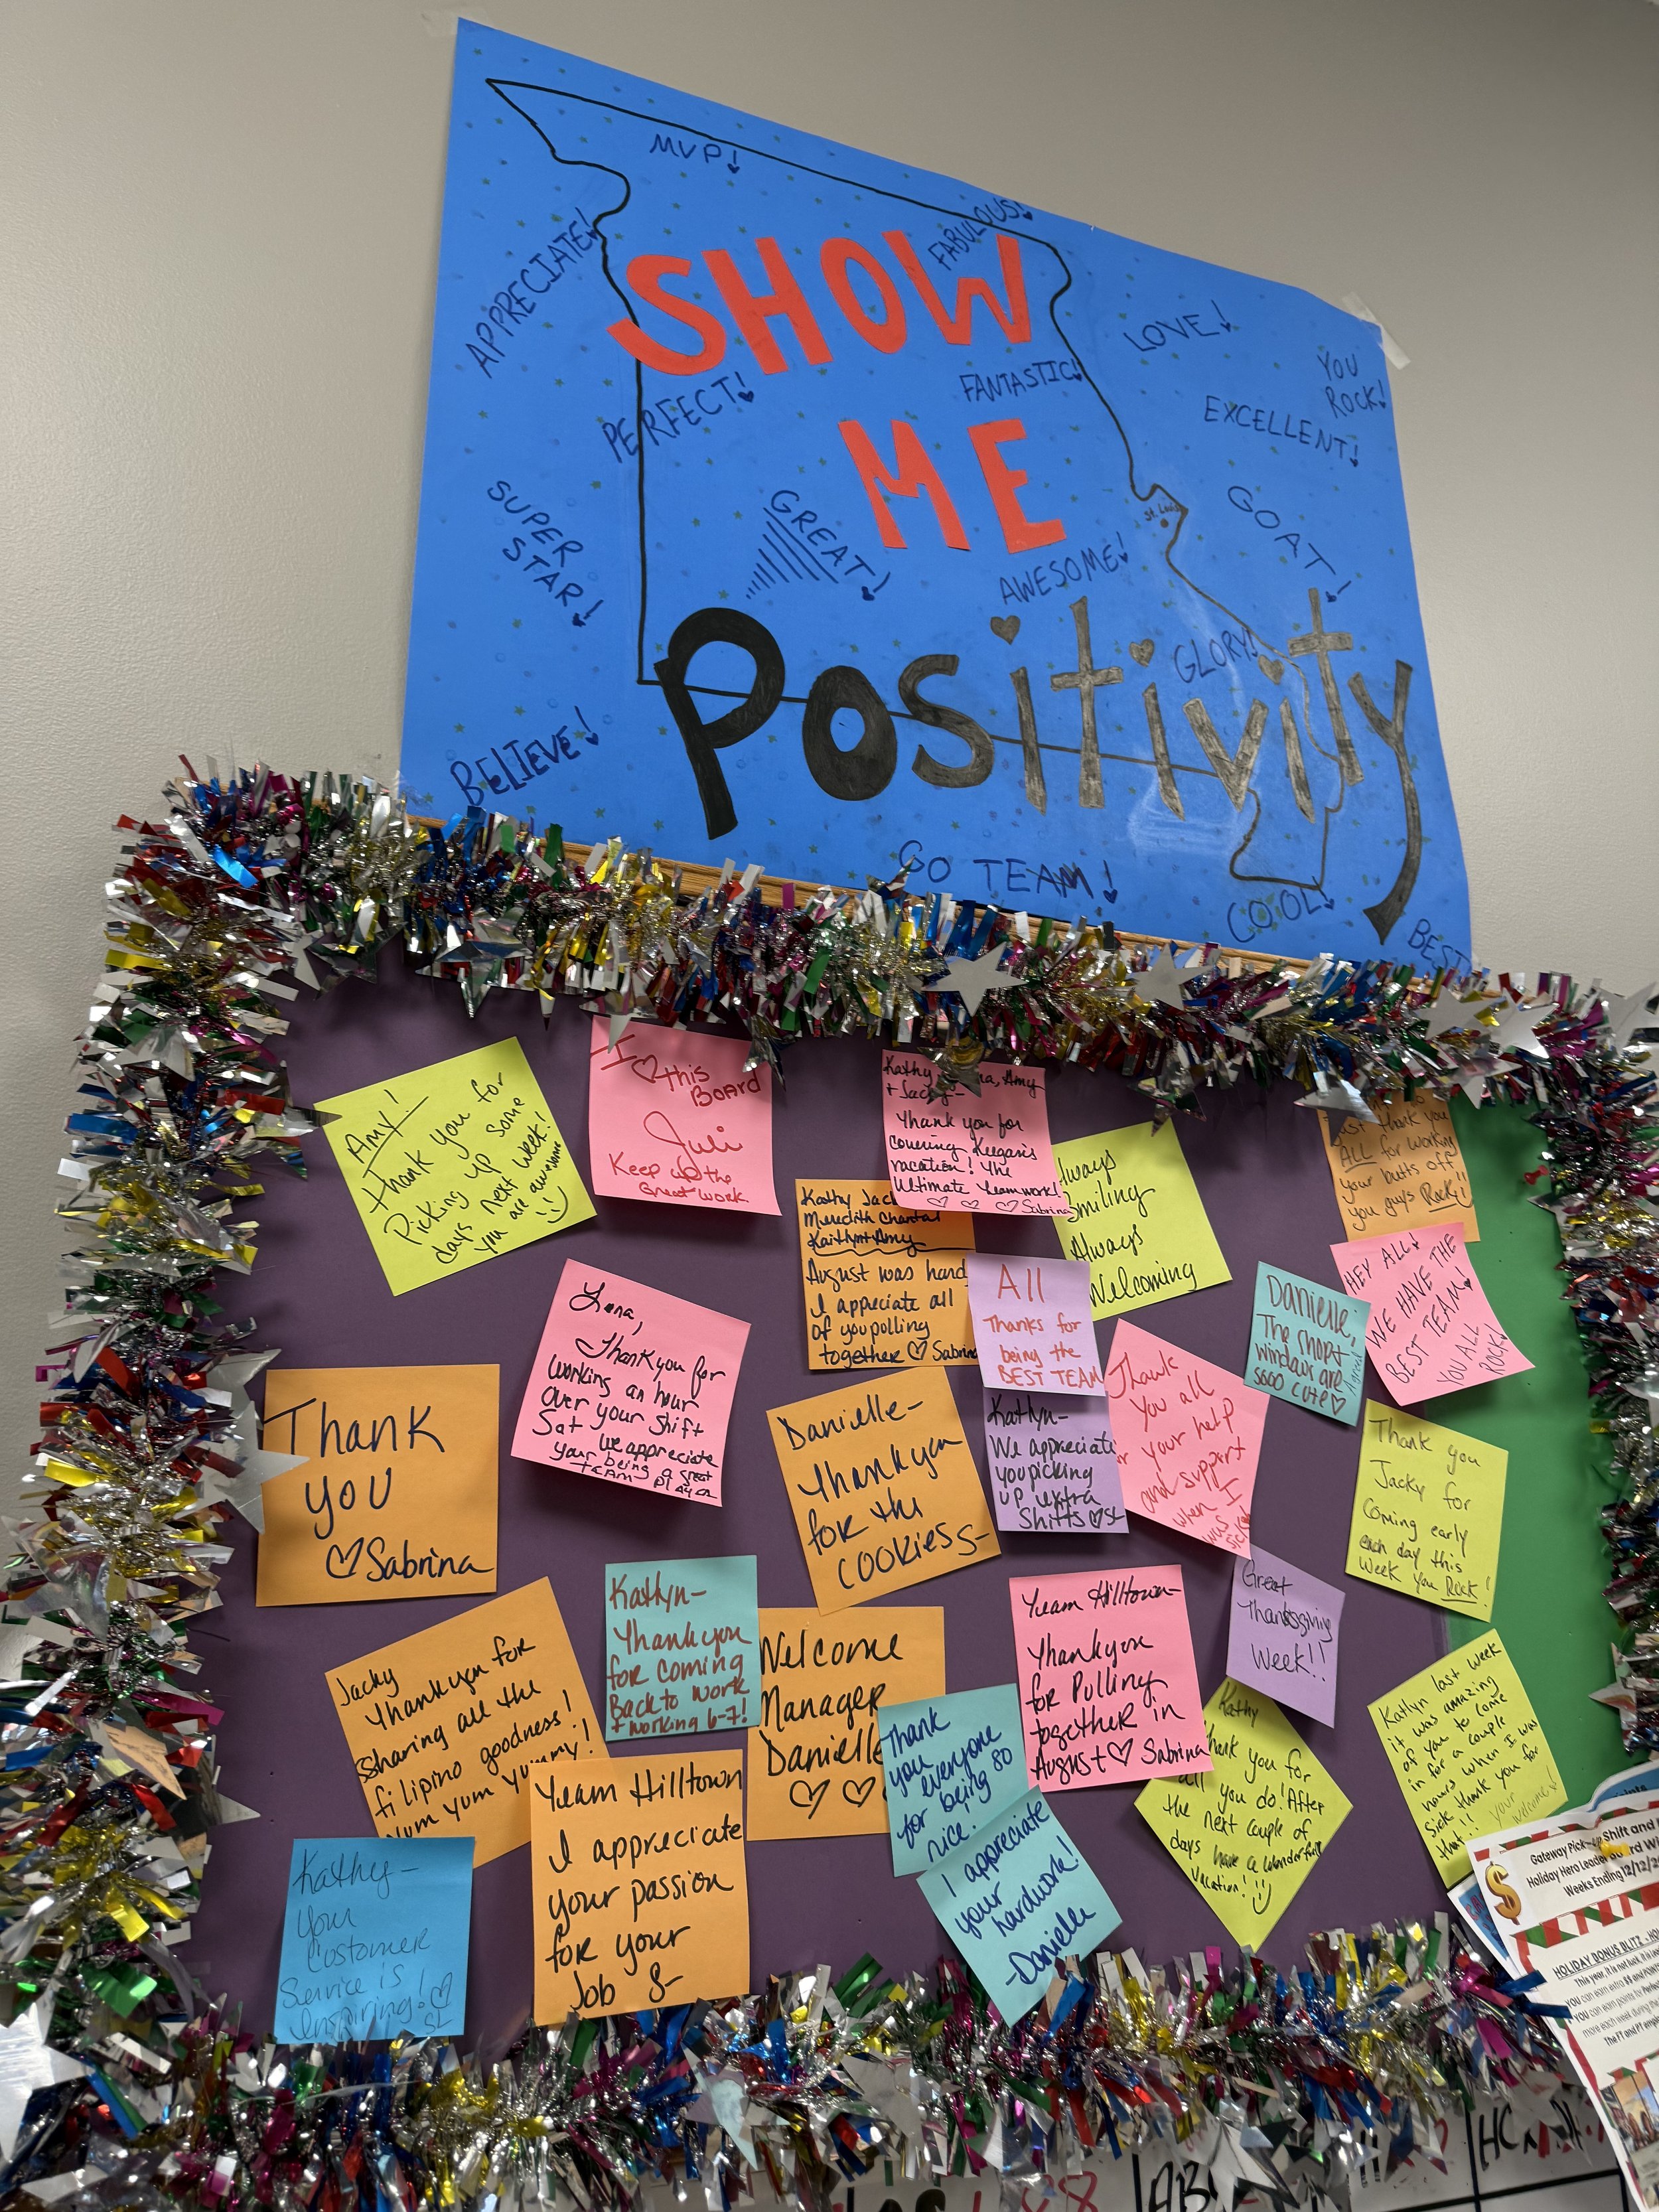 MVP!
APPRECIATE!
FABULOUS!
SHOW
LOVE!
YOU
ROCK!
PERFECT!
FANTASTIC!
EXCELLENT!
ME
SUPER
STAR!
GREAT!
St. Louis
GOAT!
AWESOME!
GLORY!
Positivity
BELIEVE!
GO TEAM!
COOL!
BEST
Amy!
Thank you for
Picking up some
days next week!
you are awesome
I ♡ this
BOARD
Juli
Keep up the
Great work.
Kathy, Amy
+ Jacky-
Thank you for
covering Keegan's
vacation! The
Ultimate Teamwork!
♡ ♡ ♡ Sabrina
Always
Smiling
Always
Welcoming
Just thank you
ALL for working
your butts off
you guys Rock!!
Kathy Jac
Meredith Chantal
Kaitlyn + Amy
August was hard
I appreciate all
of you polling
together ♡ Sabrina
All
Thanks for
being the
BEST TEAM
Danielle,
The shop
windows are
sooo cute ♡
HEY ALL!
WE HAVE THE
BEST TEAM!
YOU ALL
ROCK!
Lona,
Thank you for
working an hour
over your shift
Sat we appreciate
your being a great
TEAM player
Thank
you
♡ Sabrina
Danielle-
Thank you
for the
cookies S-
Kathyn-
We appreciate
you picking
up extra
shifts ♡ SL
Thank
You all
your help
and support
when I
was
sick
Thank you
Jacky for
coming early
each day this
week you Rock!
Jacky
Thank you for
sharing all the
filipino goodness!
Yum yum yummy!
Kathyn-
Thank you
for coming
Back to work
+ working 6-7!
Welcome
Manager
Danielle
♡ ♡
Team Hilltown-
Thank you
for Pulling
together in
August ♡ Sabrina
Great
Thanksgiving
Week!!
Thank
you
everyone
for being so
nice.
Kathy
Thank you for
all you do! After
the next couple of
days have a wonderful
vacation!
Kathlyn last week
it was amazing
of you to come
in for a couple
hours when I was
sick thank you for
that!!
your
welcome!
Team Hilltown
I appreciate
your passion
for your
Job S-
I appreciate
your
hardwork!
-Danielle
Kathy-
your
Customer
Service is
inspiring! ♡
SL
Gateway Pick-up Shift and
Holiday Hero Leader Board Wi
Weeks Ending 12/12/2
$
HOLIDAY BONUS BLITZ - HO
YOU can earn extra $$ and
YOU can earn points for
more each week during the
The FT and PT emplo